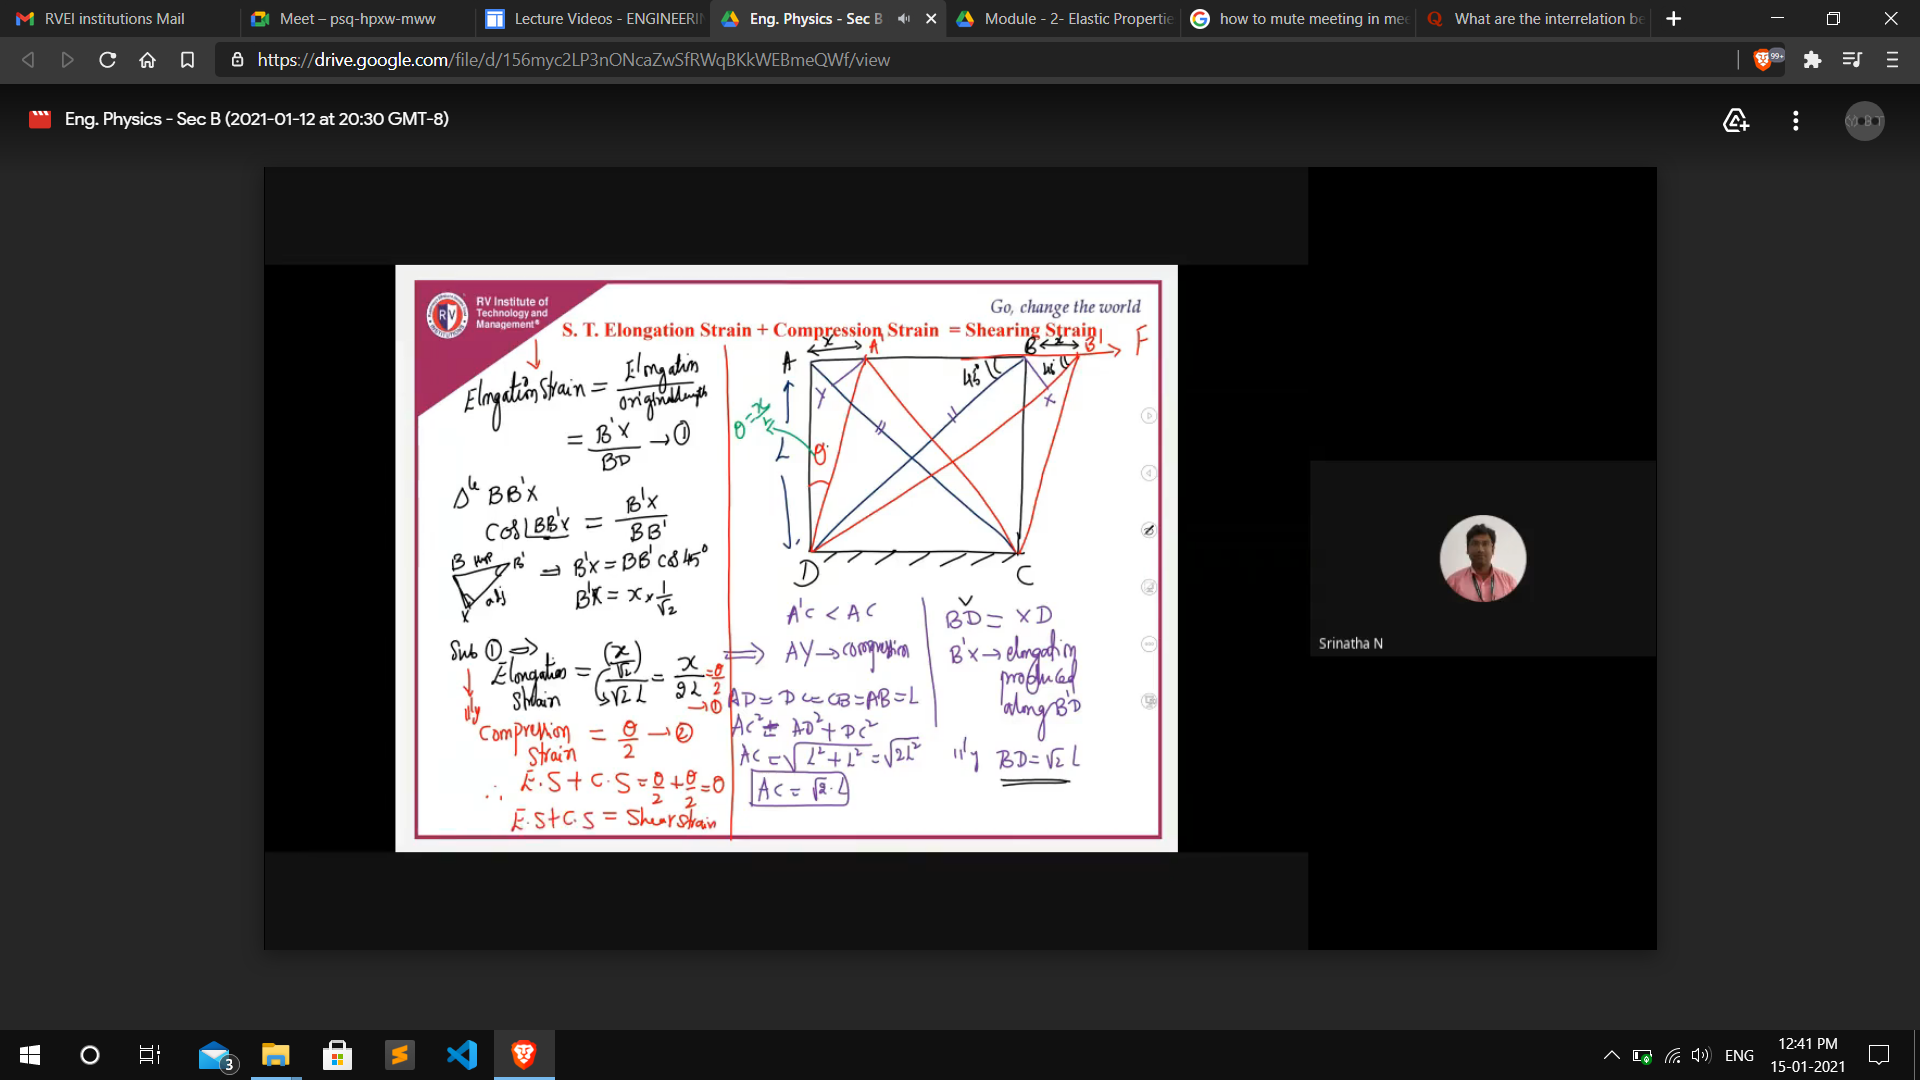 RVEI institutions Mail
Meet – psq-hpxw-mww
Lecture Videos - ENGINEERI
Eng. Physics - Sec B
Module - 2- Elastic Propertie
how to mute meeting in mee
What are the interrelation be
https://drive.google.com/file/d/156myc2LP3nONcaZwSfRWqBKkWEBmeQWf/view
99+
Eng. Physics - Sec B (2021-01-12 at 20:30 GMT-8)
RV Institute of
Technology and
Management®
RV
Go, change the world
S. T. Elongation Strain + Compression Strain = Shearing Strain
Elongation Strain = Elongation / original length
= B'X / BD → ①
Δle BB'X
cos∠BB'X = B'X / BB'
B hyp B'
adj
X
⇒ B'X = BB' cos 45°
B'X = x × 1/√2
Sub ① ⇒
Elongation Strain = (x/√2) / √2 L = x / 2L = θ/2 → ①
lly
Compression Strain = θ/2 → ②
∴ E.S + C.S = θ/2 + θ/2 = θ
E.S + C.S = Shear strain
A x A' B x B' F
45° 45°
Y X
θ = x/L
L θ
D C
A'C < AC
⇒ AY → compression
AD = DC = CB = AB = L
AC² = AD² + DC²
AC = √L² + L² = √2L²
AC = √2 · L
BD = XD
B'X → elongation
produced
along B'D
lly BD = √2 L
Srinatha N
3
ENG
12:41 PM
15-01-2021